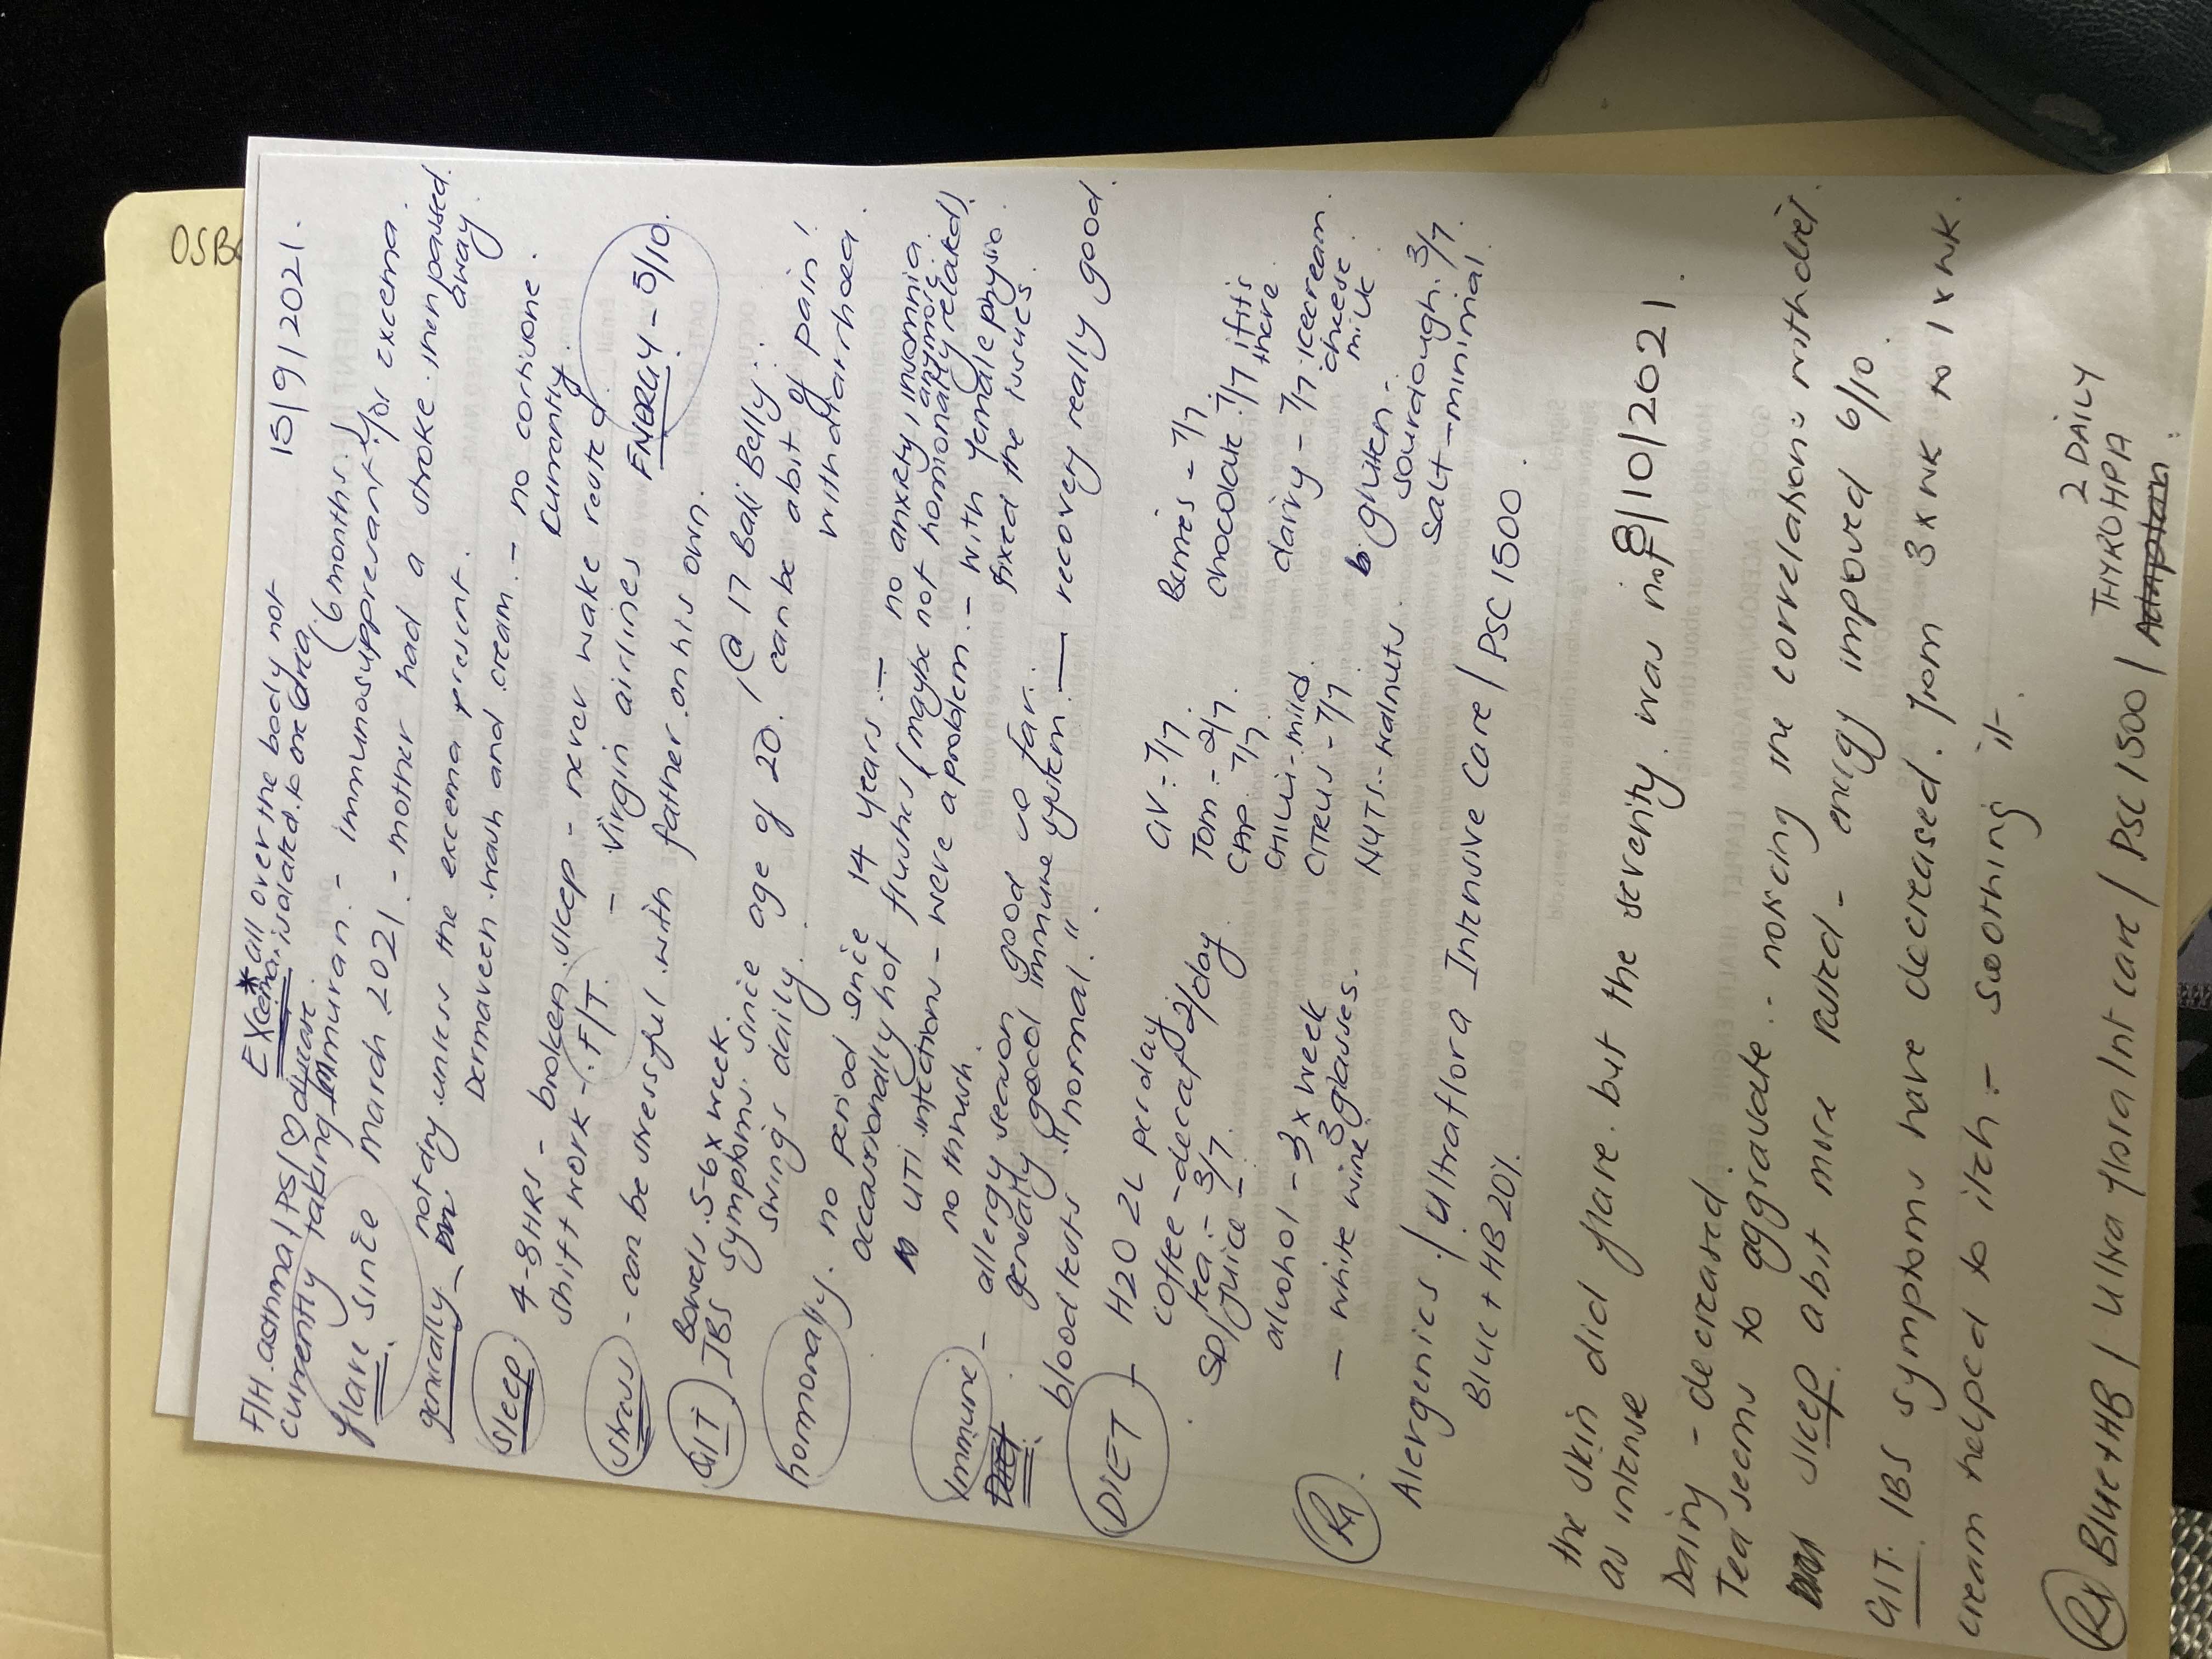 OSB
15/9/2021.
EXcema * all over the body not
isolated to one area.
F/H. asthma / PS /
currently taking Imuran. - immunosuppresant for excema.
(6 months)
flare since March 2021. - mother had a stroke. then passed
away.
generally - not dry unless the excema present.
Dermaveen wash and cream. - no cortisone.
currently.
Sleep 4-8HRS - broken sleep - never wake rested.
shift work - F/T. - Virgin airlines
ENERGY - 5/10.
Stress - can be stressful with father on his own.
GIT Bowels. 5-6 x week.
- IBS symptoms. since age of 20. / @ 17 Bali Belly.
swings daily. can be abit of pain!
with diarrhoea.
hormonally. no period since 14 years. - no anxiety, insomnia
anymore.
occassionally hot flushes (maybe not hormonally related)
UTI infections - were a problem. - with female physio.
no thrush. fixed the issues.
Immune - allergy season good so far.
Diet generally good immune system. - recovery really good.
blood tests "normal."
DIET - H2O 2L per day
coffee - decaf 2/day.
tea - 3/7.
SD/juice -
alcohol - 3 x week
3 glasses.
- white wine
GV - 7/7.
Tom - 2/7.
CAP 7/7.
CHILLI - mild.
CITRUS - 7/7.
NUTS. - walnuts.
Berries - 7/7
chocolate. 7/7 if it's
there
dairy - 7/7. icecream.
cheese.
milk.
gluten -
sourdough. 3/7.
Salt - minimal.
Rx.
Alergenics. / Ultraflora Intensive Care / PSC 1500.
Blue + HB 20%.
8/10/2021.
the skin did flare. but the severity was not
as intense
Dairy - decreased
Tea seems to aggravate. - noticing the correlations with diet
sleep. abit more rested - energy improved 6/10.
GIT. IBS symptoms have decreased. from 3 x wk to 1 x wk.
cream helped to itch - soothing it
2 DAILY
Rx Blue + HB / Ultra flora Int care / PSC 1500 / THYROHPA
Adaptan